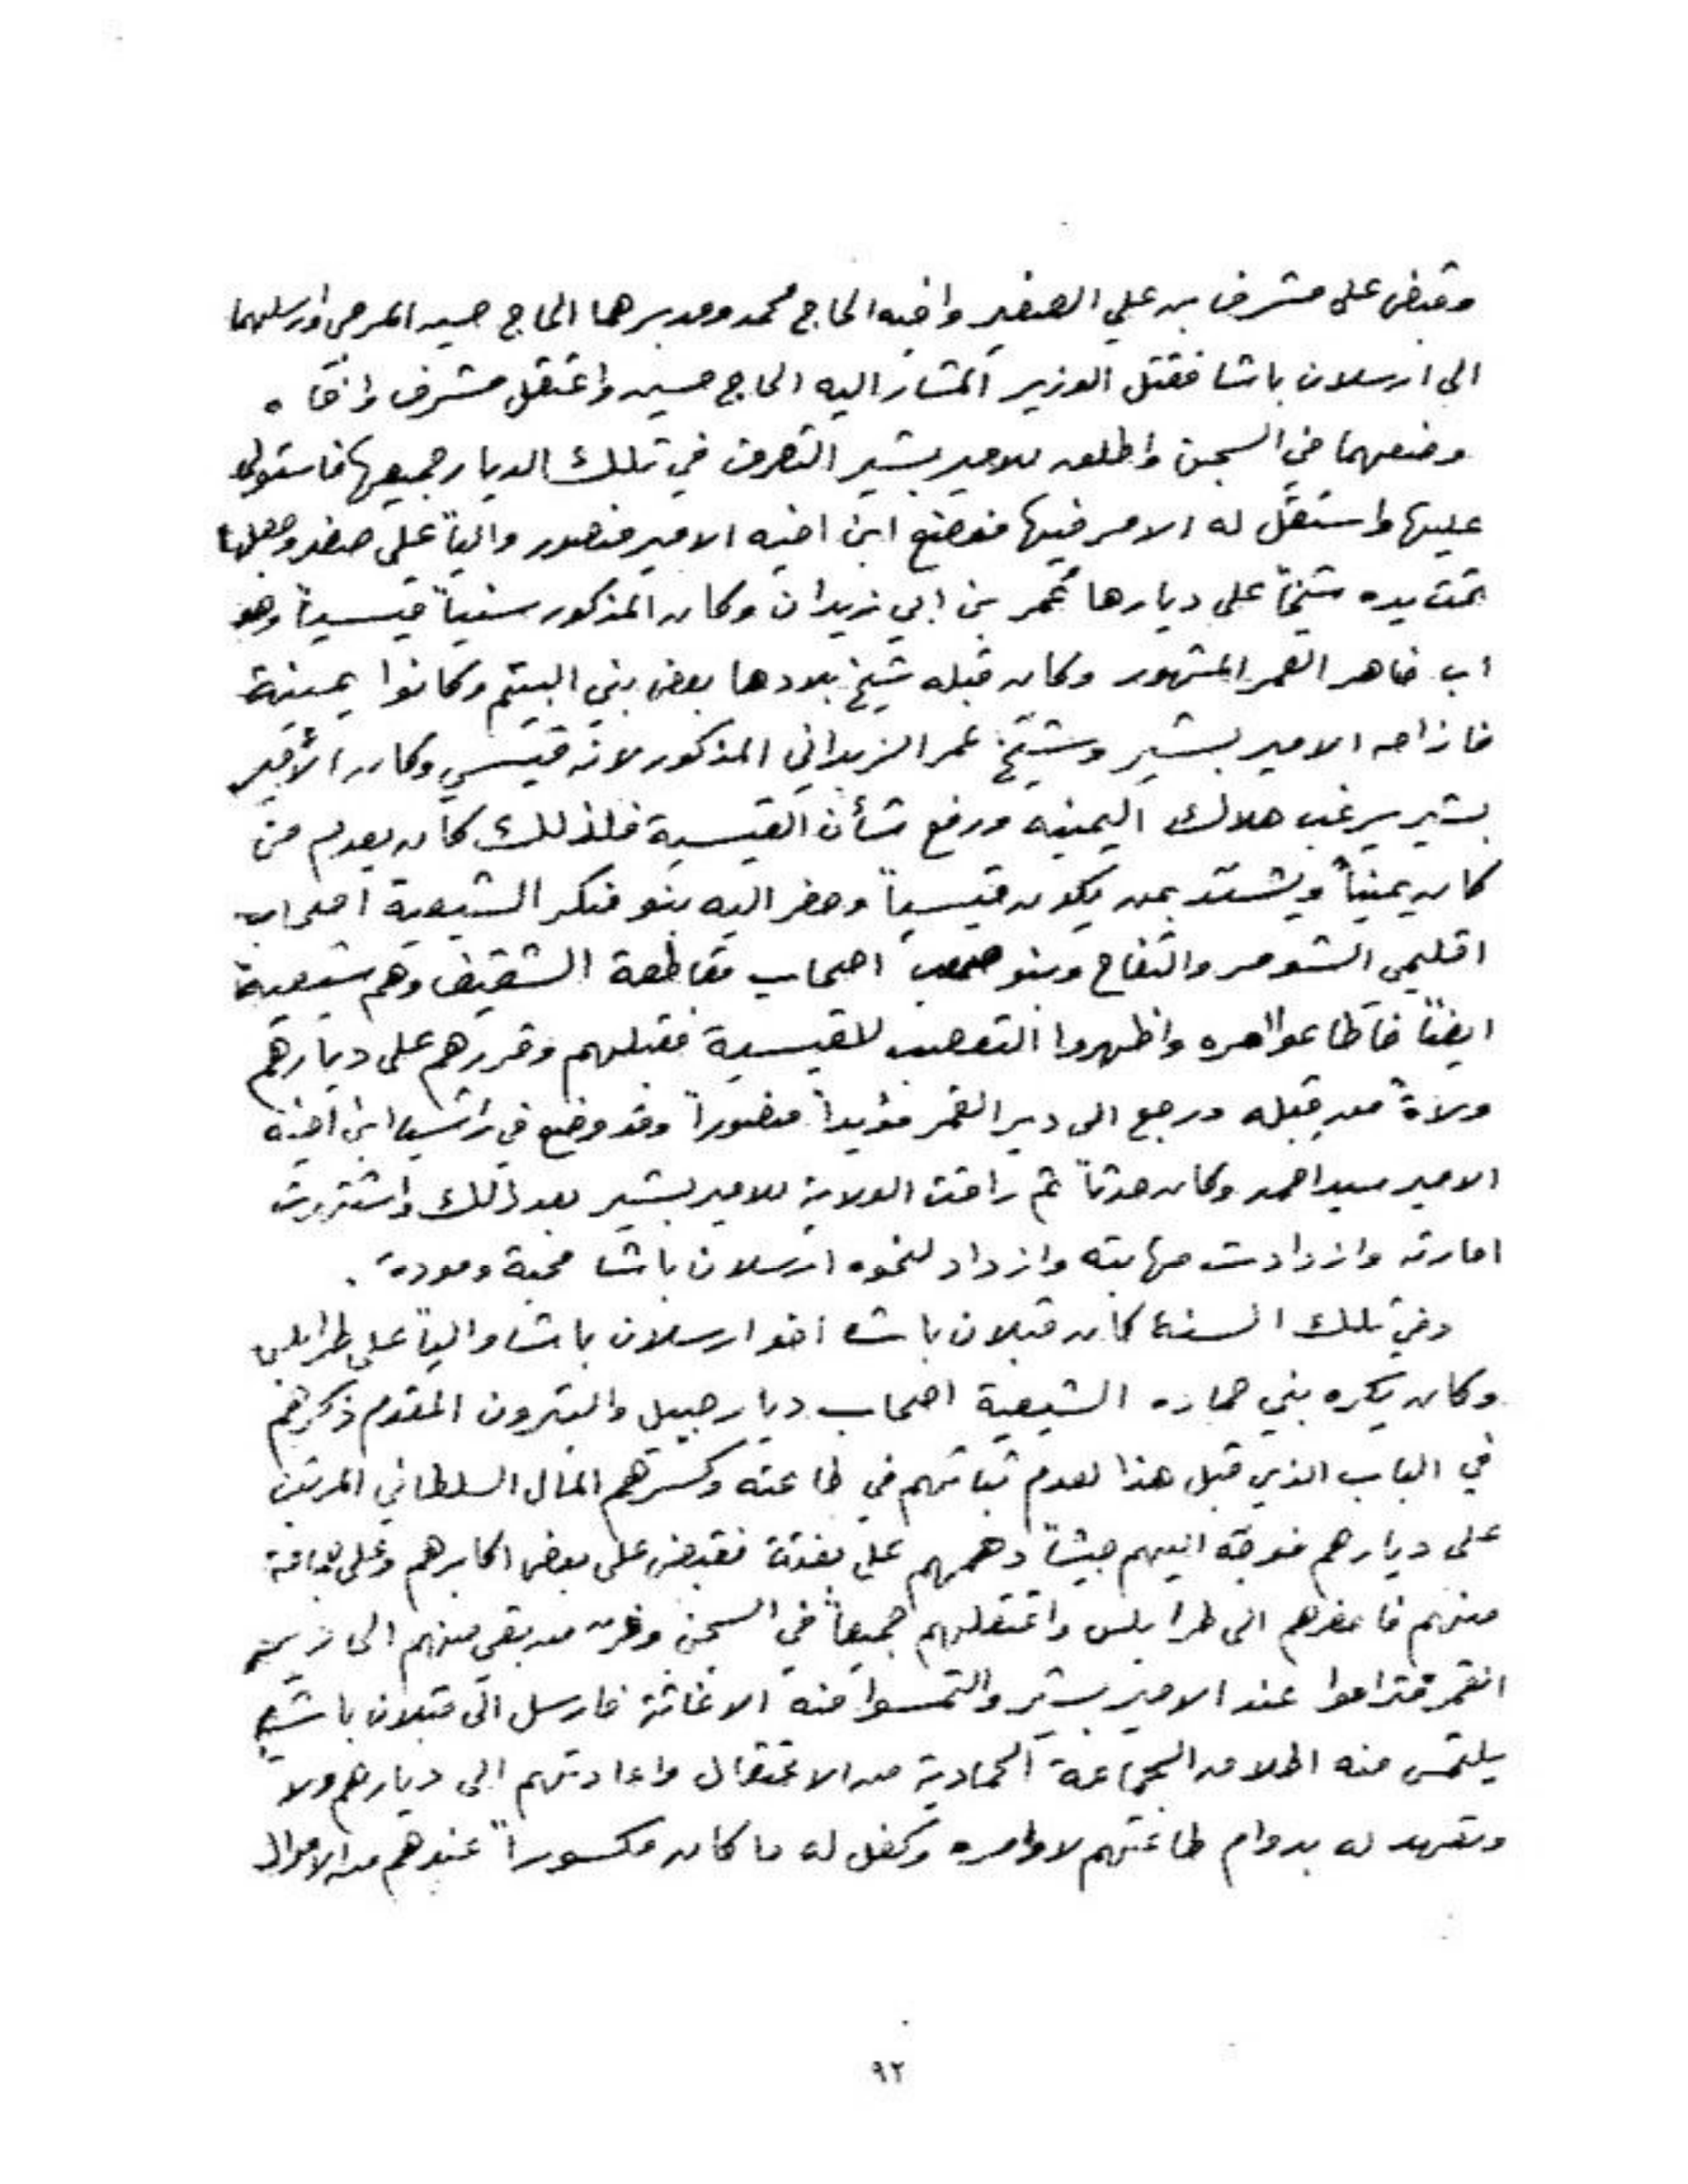 وقبض على مشرف بن علي الصغير واخيه الحاج محمد ومدبرهما الحاج حسين المرجي وارسلهما
الى ارسلان باشا فقتل الوزير المشار اليه الحاج حسين واعتقل مشرف واخاه
وضعهما في السجن واطلق للامير بشير التصرف في تلك الديار جميعها فاستولى
عليها واستقل له الامر فيها فوضع ابن اخيه الامير منصور والياً على صفد وجعل
تحت يده شيخاً على ديارها عُمر بن ابي زيدان وكان المذكور سنياً قيسياً وهو
اب ضاهر العمر المشهور وكان قبله شيخ بلادها بعض بني اليتم وكانوا يمينية
فازاحه الامير بشير وشيَّخ عمر الزيداني المذكور لانه قيسي وكان الأمير
بشير يرغب هلاك اليمنيه ورفع شأن القيسية فلذلك كان يعدم من
كان يمنياً ويشتد بمن يكون قيسياً وحضر اليه بنو منكر الشيعية اصحاب
اقليمي الشومر والتفاح وبنو صعب اصحاب مقاطعة الشقيف وهم شيعية
ايضاً فاطاعوا امره واظهروا التعصب للقيسية فقبلهم وقررهم على ديارهم
ولاةً من قبله ورجع الى دير القمر مؤيداً منصوراً وقد وضع في راشيا ابن اخيه
الامير سيد احمد وكان حدثاً ثم راقت الولاية للامير بشير بعد ذلك واشتهرت
امارته وازدادت مهابته وازداد لنحوه ارسلان باشا محبة ومودة .
وفي تلك السنة كان قبلان باشا اخو ارسلان باشا والياً على طرابلس
وكان يكره بني حماده الشيعية اصحاب ديار جبيل والبترون المقدم ذكرهم
في الباب الذي قبل هذا لعدم ثباتهم في طاعته وكسرهم المال السلطاني المرتب
على ديارهم فوجّه اليهم جيشاً دهمهم على بغتة فقبض على بعض اكابرهم وعلى جماعة
منهم فاحضرهم الى طرابلس واعتقلهم جميعاً في السجن وفرّ من بقي منهم الى دير
القمر فتراموا عند الامير بشير والتمسوا منه الاغاثة فارسل الى قبلان باشا
يلتمس منه اطلاق الجماعة الحمادية من الاعتقال واعادتهم الى ديارهم ولاةً
وتعهد له بدوام طاعتهم لاوامره وكفل له ما كان مكسوراً عندهم من الاموال
٩٢